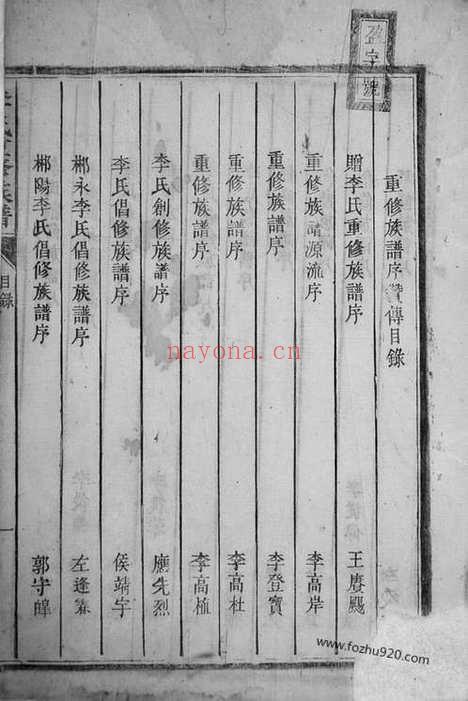 字號
重修族譜序贊傳目錄
贈李氏重修族譜序 王賡颺
重修族譜源流序 李高岸
重修族譜序 李登寶
重修族譜序 李高杜
重修族譜序 李高植
李氏創修族譜序 廳先烈
李氏倡修族譜序 侯靖宇
郴永李氏倡修族譜序 左逢
郴陽李氏倡修族譜序 郭守
族譜
目錄
一
nayona.cn
www.fozhu920.com